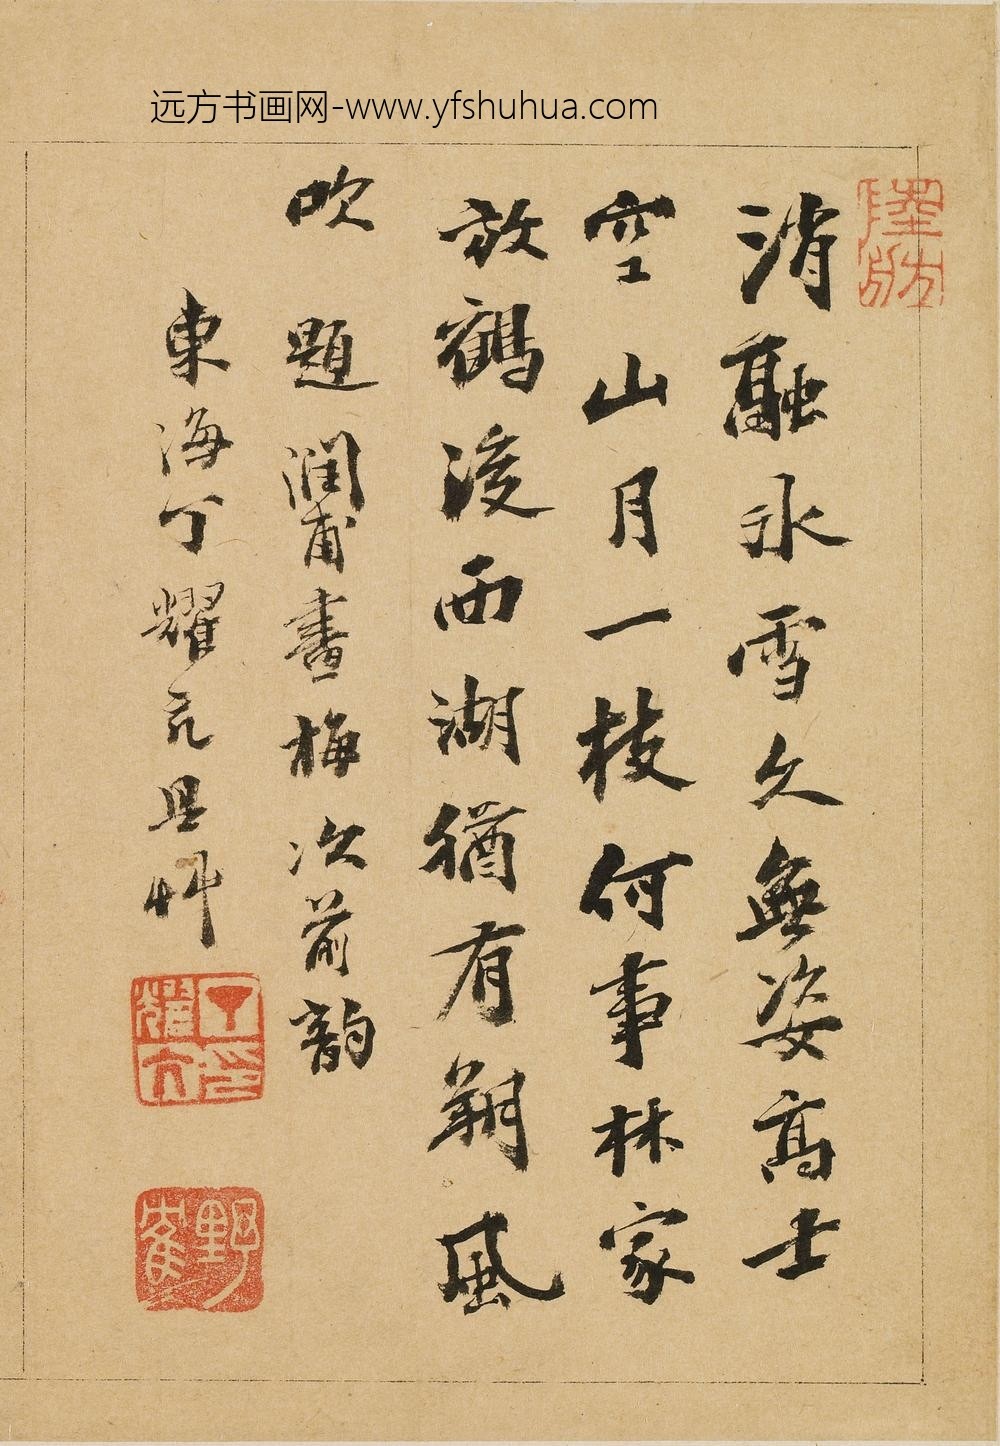 远方书画网-www.yfshuhua.com
消融冰雪久無姿高士
空山月一枝何事林家
放鶴後西湖猶有朔風
吹 題潤甫書梅次前韵
東海丁耀亢具艸
丁耀亢印
野鶴